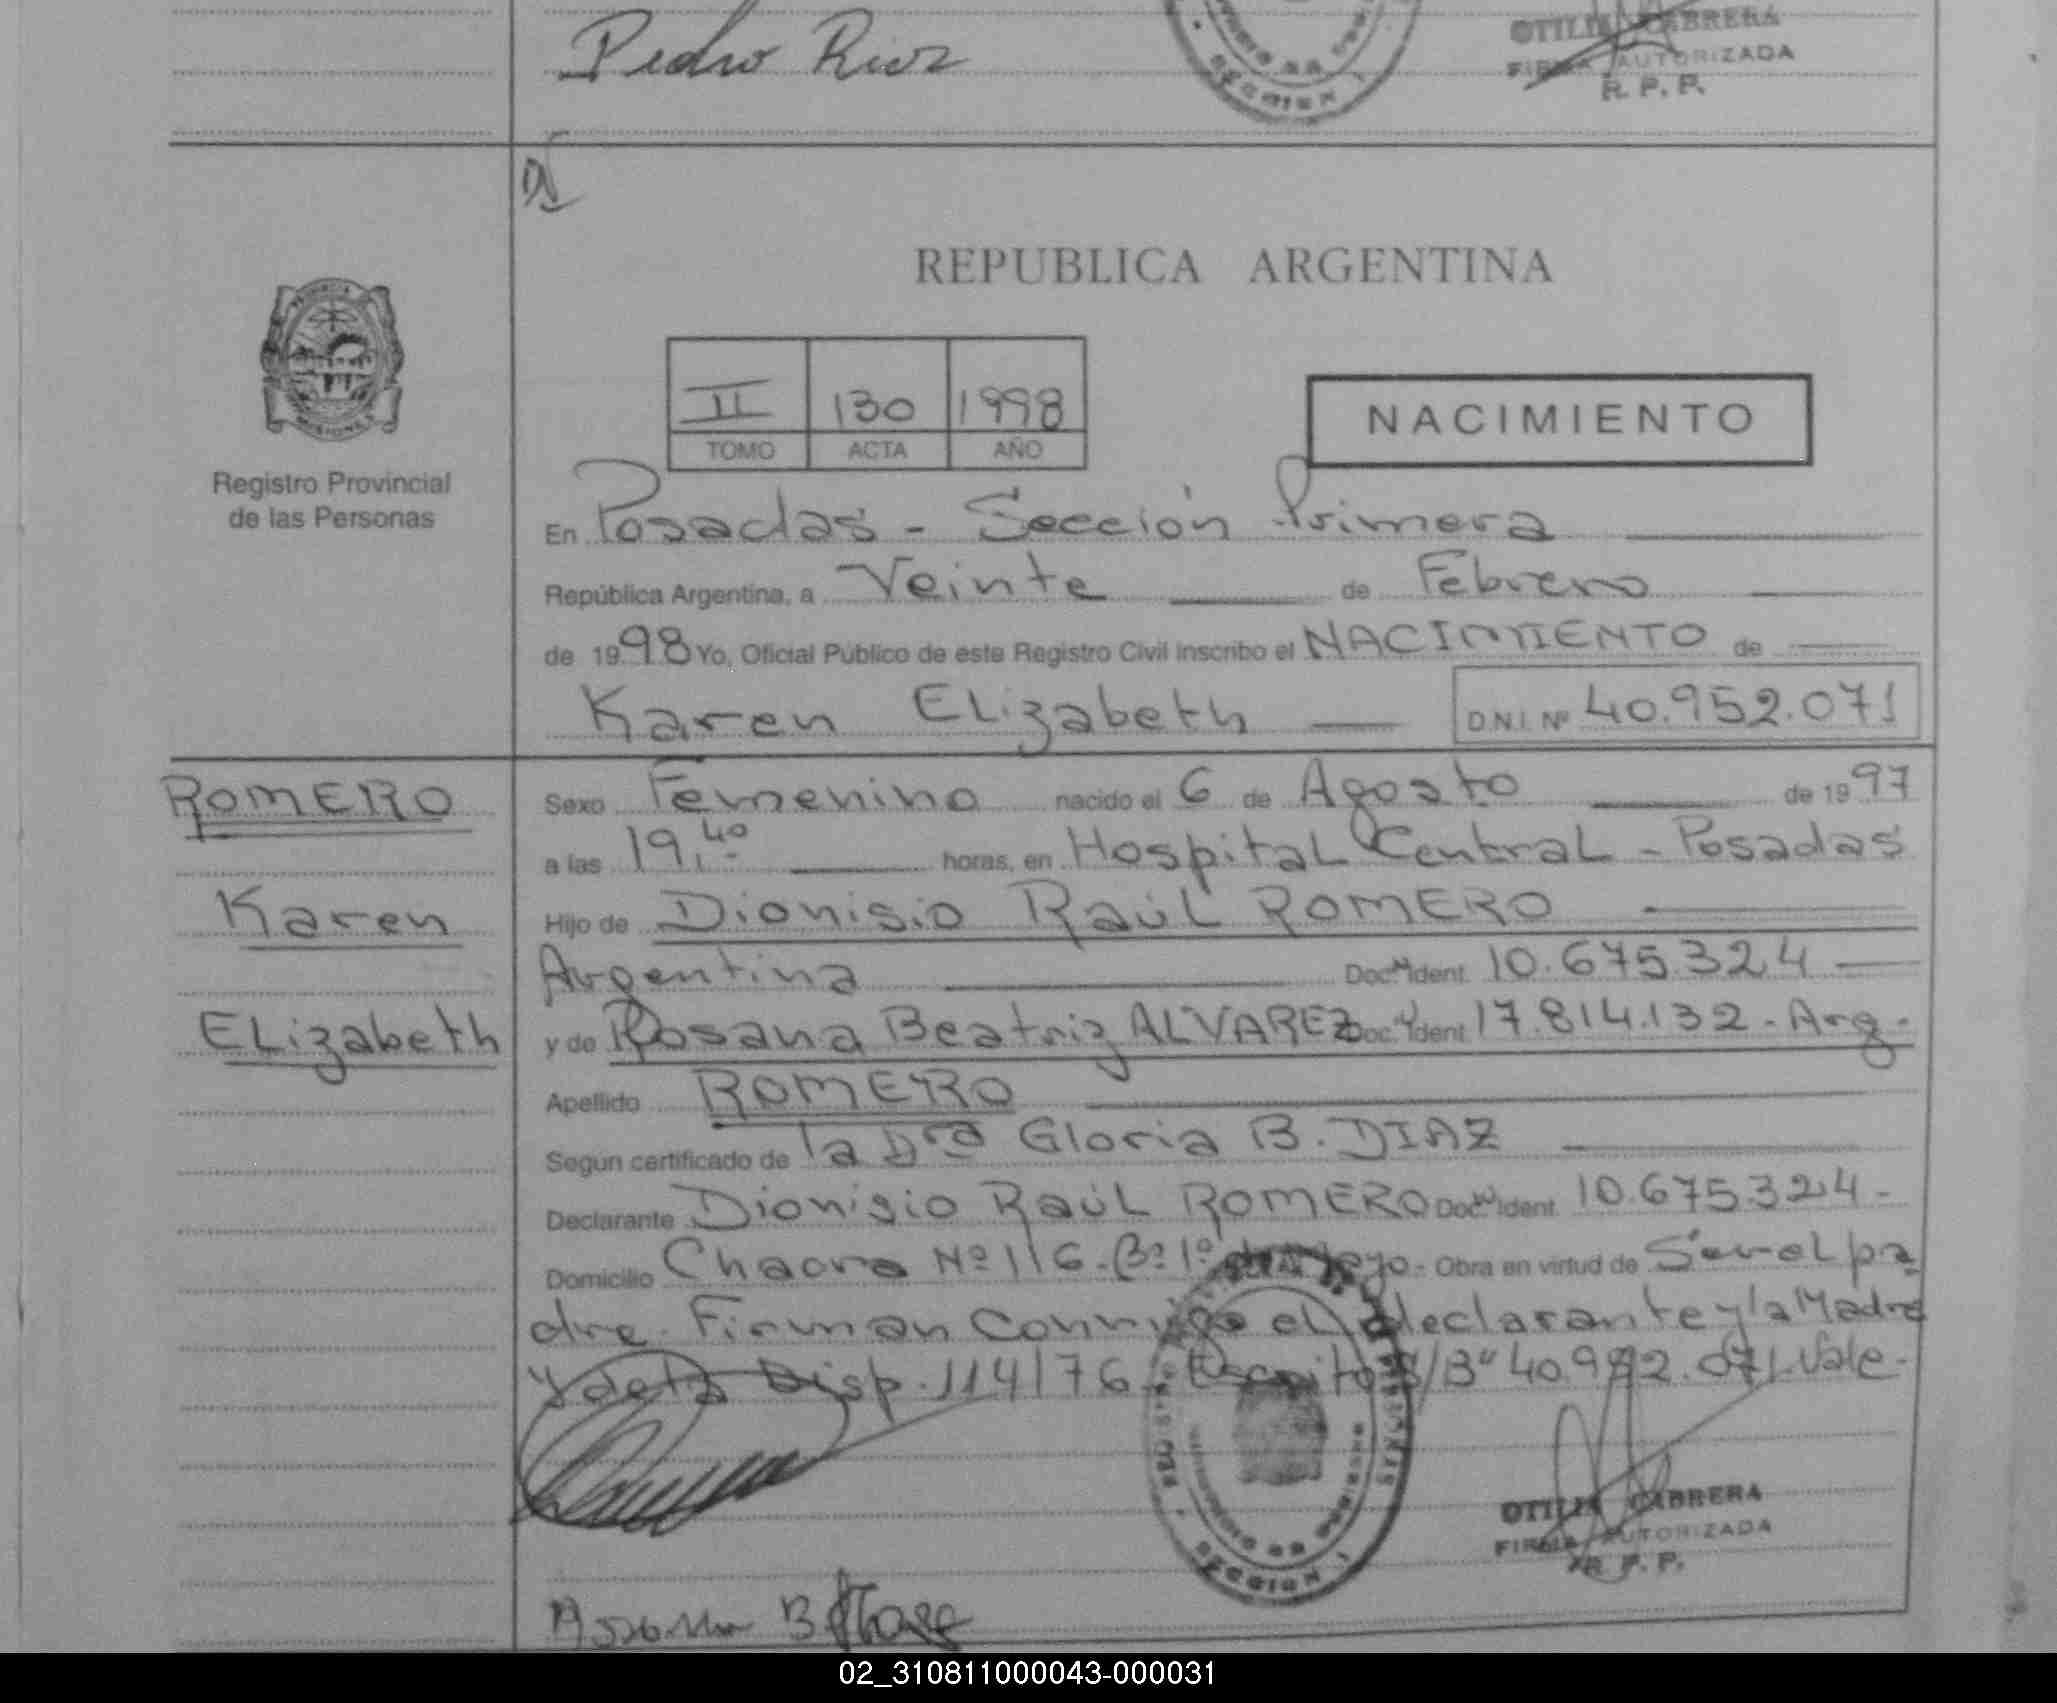 Pedro Rios
OTILIA CABRERA
FIRMA AUTORIZADA
R. P. P.
SECCION I
REPUBLICA ARGENTINA
II 130 1998
TOMO ACTA AÑO
NACIMIENTO
Registro Provincial
de las Personas
En Posadas - Sección Primera
República Argentina, a Veinte de Febrero
de 1998 Yo, Oficial Público de este Registro Civil inscribo el NACIMIENTO de
Karen ELizabeth D.N.I. Nº 40.952.071
ROMERO
Karen
ELizabeth
Sexo Femenino nacido el 6 de Agosto de 1997
a las 19,40 horas, en HospitaL CentraL - Posadas
Hijo de Dionisio RaúL ROMERO
Argentina Doc. Ident. 10.675.324
y de Rosana Beatriz ALVAREZ Doc. Ident. 17.814.132 - Arg.
Apellido ROMERO
Según certificado de la Dra Gloria B. DIAZ
Declarante Dionisio RaúL ROMERO Doc. Ident. 10.675.324 -
Domicilio Chacra Nº 116 - Bº 1º de Mayo - Obra en virtud de Ser eL pa
dre. Firman Conmigo eL declarante y la Madre
y de la Disp. 114/76. Escrito S/B" 40.952.071. Vale.
SECCION I
OTILIA CABRERA
FIRMA AUTORIZADA
R. P. P.
02_310811000043-000031